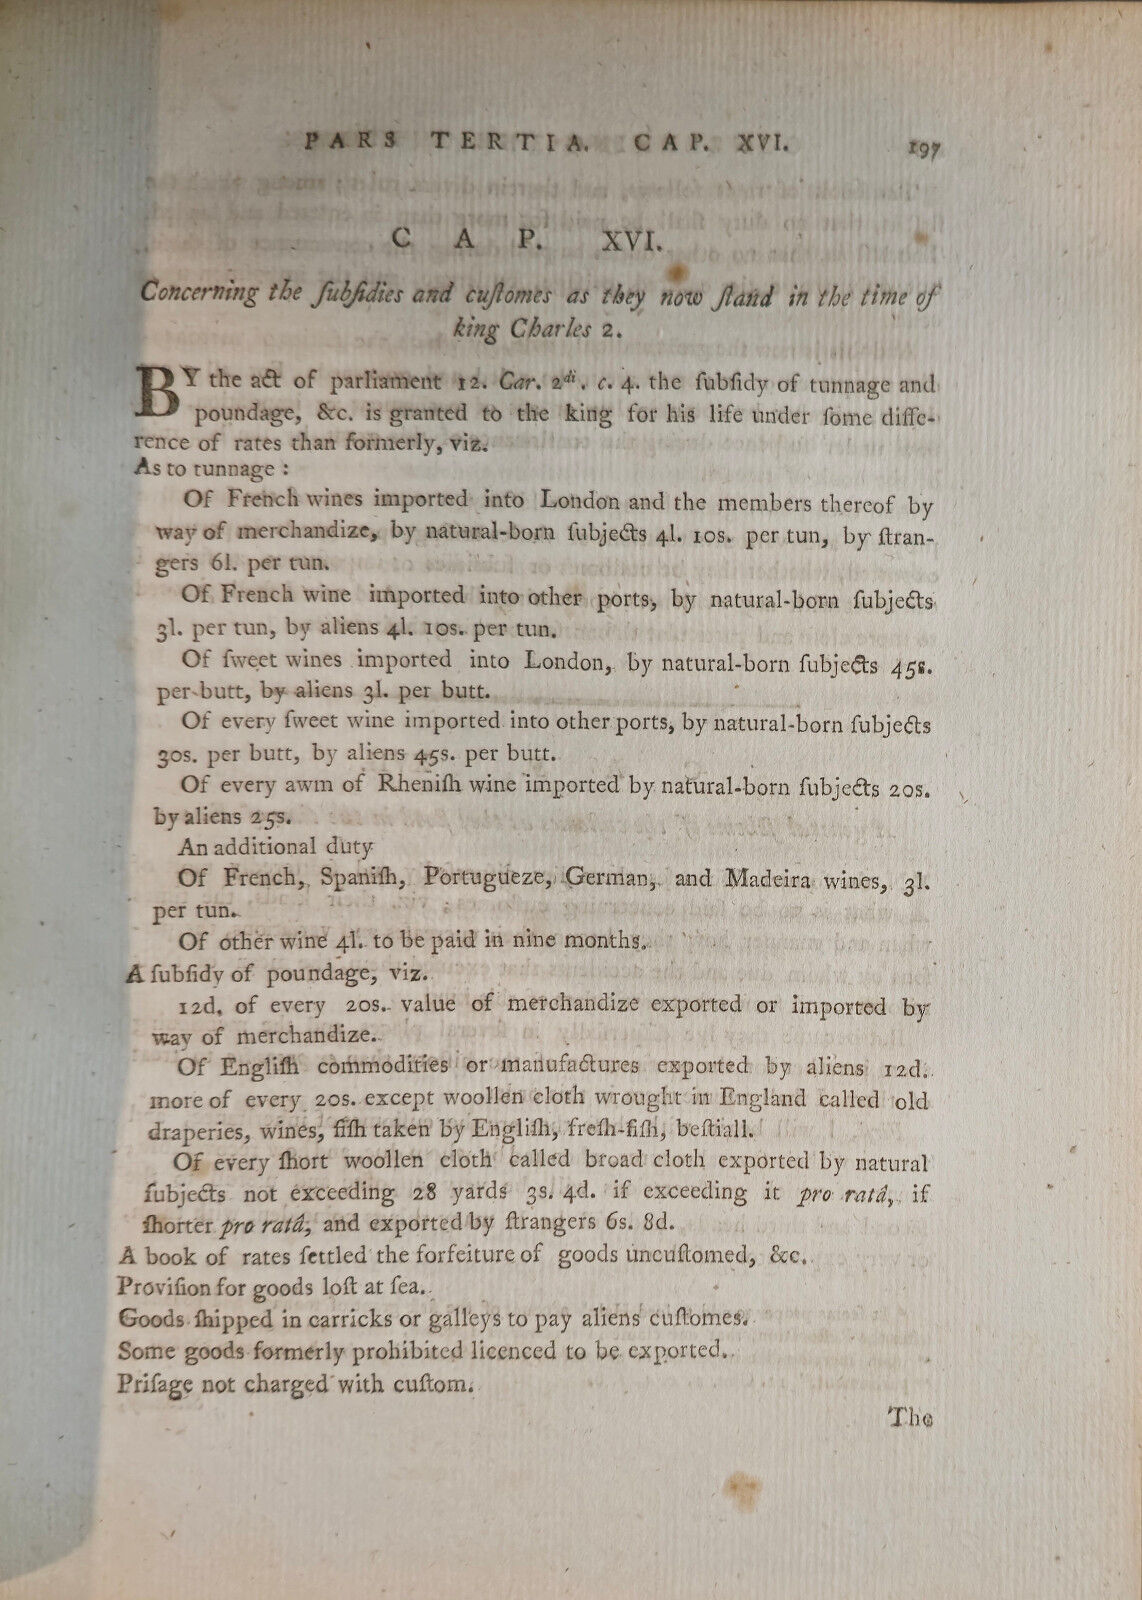 PARS TERTIA. CAP. XVI. 197
CAP. XVI.
Concerning the ſubſidies and cuſtomes as they now ſtand in the time of
king Charles 2.
BY the act of parliament 12. Car. 2di. c. 4. the ſubſidy of tunnage and
poundage, &c. is granted to the king for his life under ſome diffe-
rence of rates than formerly, viz.
As to tunnage :
Of French wines imported into London and the members thereof by
way of merchandize, by natural-born ſubjects 4l. 10s. per tun, by ſtran-
gers 6l. per tun.
Of French wine imported into other ports, by natural-born ſubjects
3l. per tun, by aliens 4l. 10s. per tun.
Of ſweet wines imported into London, by natural-born ſubjects 45s.
per butt, by aliens 3l. per butt.
Of every ſweet wine imported into other ports, by natural-born ſubjects
30s. per butt, by aliens 45s. per butt.
Of every awm of Rheniſh wine imported by natural-born ſubjects 20s.
by aliens 25s.
An additional duty
Of French, Spaniſh, Portugueze, German, and Madeira wines, 3l.
per tun.
Of other wine 4l. to be paid in nine months.
A ſubſidy of poundage, viz.
12d. of every 20s. value of merchandize exported or imported by
way of merchandize.
Of Engliſh commodities or manufactures exported by aliens 12d.
more of every 20s. except woollen cloth wrought in England called old
draperies, wines, fiſh taken by Engliſh, freſh-fiſh, beſtiall.
Of every ſhort woollen cloth called broad cloth exported by natural
ſubjects not exceeding 28 yards 3s. 4d. if exceeding it pro ratâ, if
ſhorter pro ratâ, and exported by ſtrangers 6s. 8d.
A book of rates ſettled the forfeiture of goods uncuſtomed, &c.
Proviſion for goods loſt at ſea.
Goods ſhipped in carricks or galleys to pay aliens cuſtomes.
Some goods formerly prohibited licenced to be exported.
Priſage not charged with cuſtom.
The